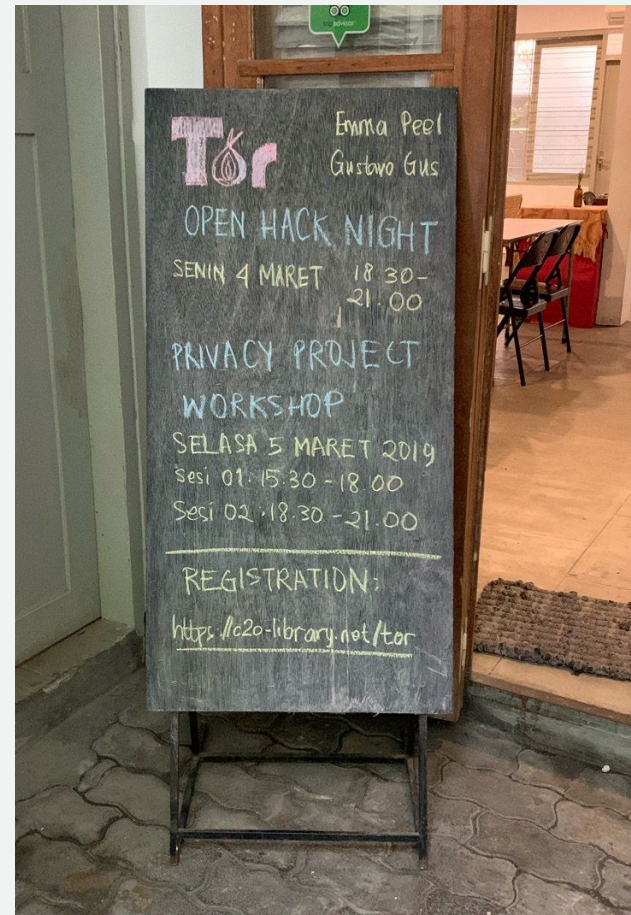 Tor
Emma Peel
Gustavo Gus
OPEN HACK NIGHT
SENIN 4 MARET 18 30-
21.00
PRIVACY PROJECT
WORKSHOP
SELASA 5 MARET 2019
Sesi 01. 15.30 - 18.00
Sesi 02. 18.30 - 21.00
REGISTRATION:
https://c2o-library.net/tor